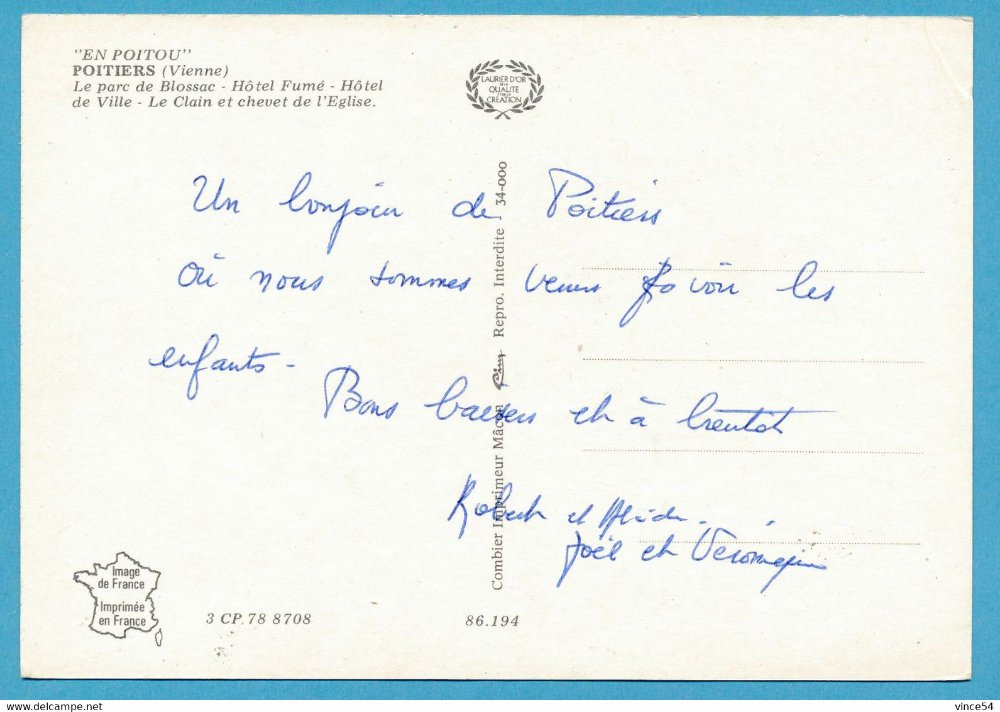 "EN POITOU"
POITIERS (Vienne)
Le parc de Blossac - Hôtel Fumé - Hôtel
de Ville - Le Clain et chevet de l'Eglise.
LAURIER D'OR
DE LA
QUALITE
CREATION
Un bonjour de Poitiers
où nous sommes venus voir les
enfants -
Bons baisers et à bientôt
Robert et
Joël et Véronique
Combier Imprimeur Mâcon Cim Repro. Interdite 34-000
Image
de France
Imprimée
en France
3 CP. 78 8708
86.194
www.delcampe.net
vince54